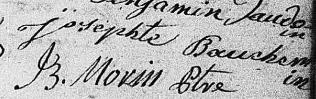 Benjamin Jaudoin
Josephte Bauchemin
JB. Morin Ptre